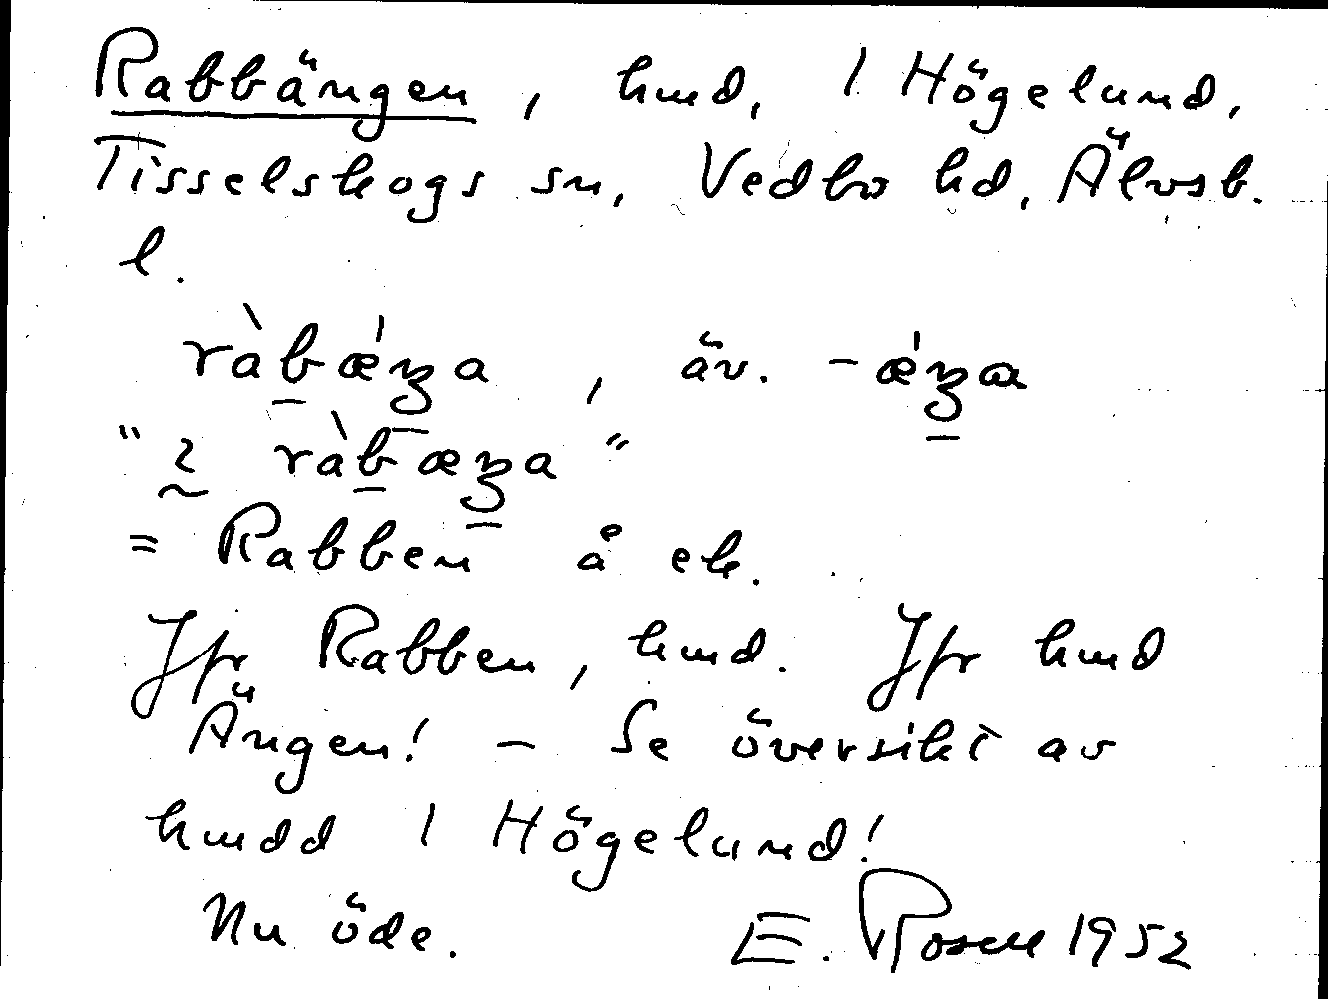 Rabbängen, hmd, 1 Högelund,
Tisselskogs sn, Vedbo hd, Älvsb.
l.
ràbǽŋa, äv. -ǽŋɑ
"2 ràbæŋa"
= Rabben å ek.
Jfr Rabben, hmd. Jfr hmd
Ängen! - Se översikt av
hmdd 1 Högelund!
Nu öde. E. Rosell 1952